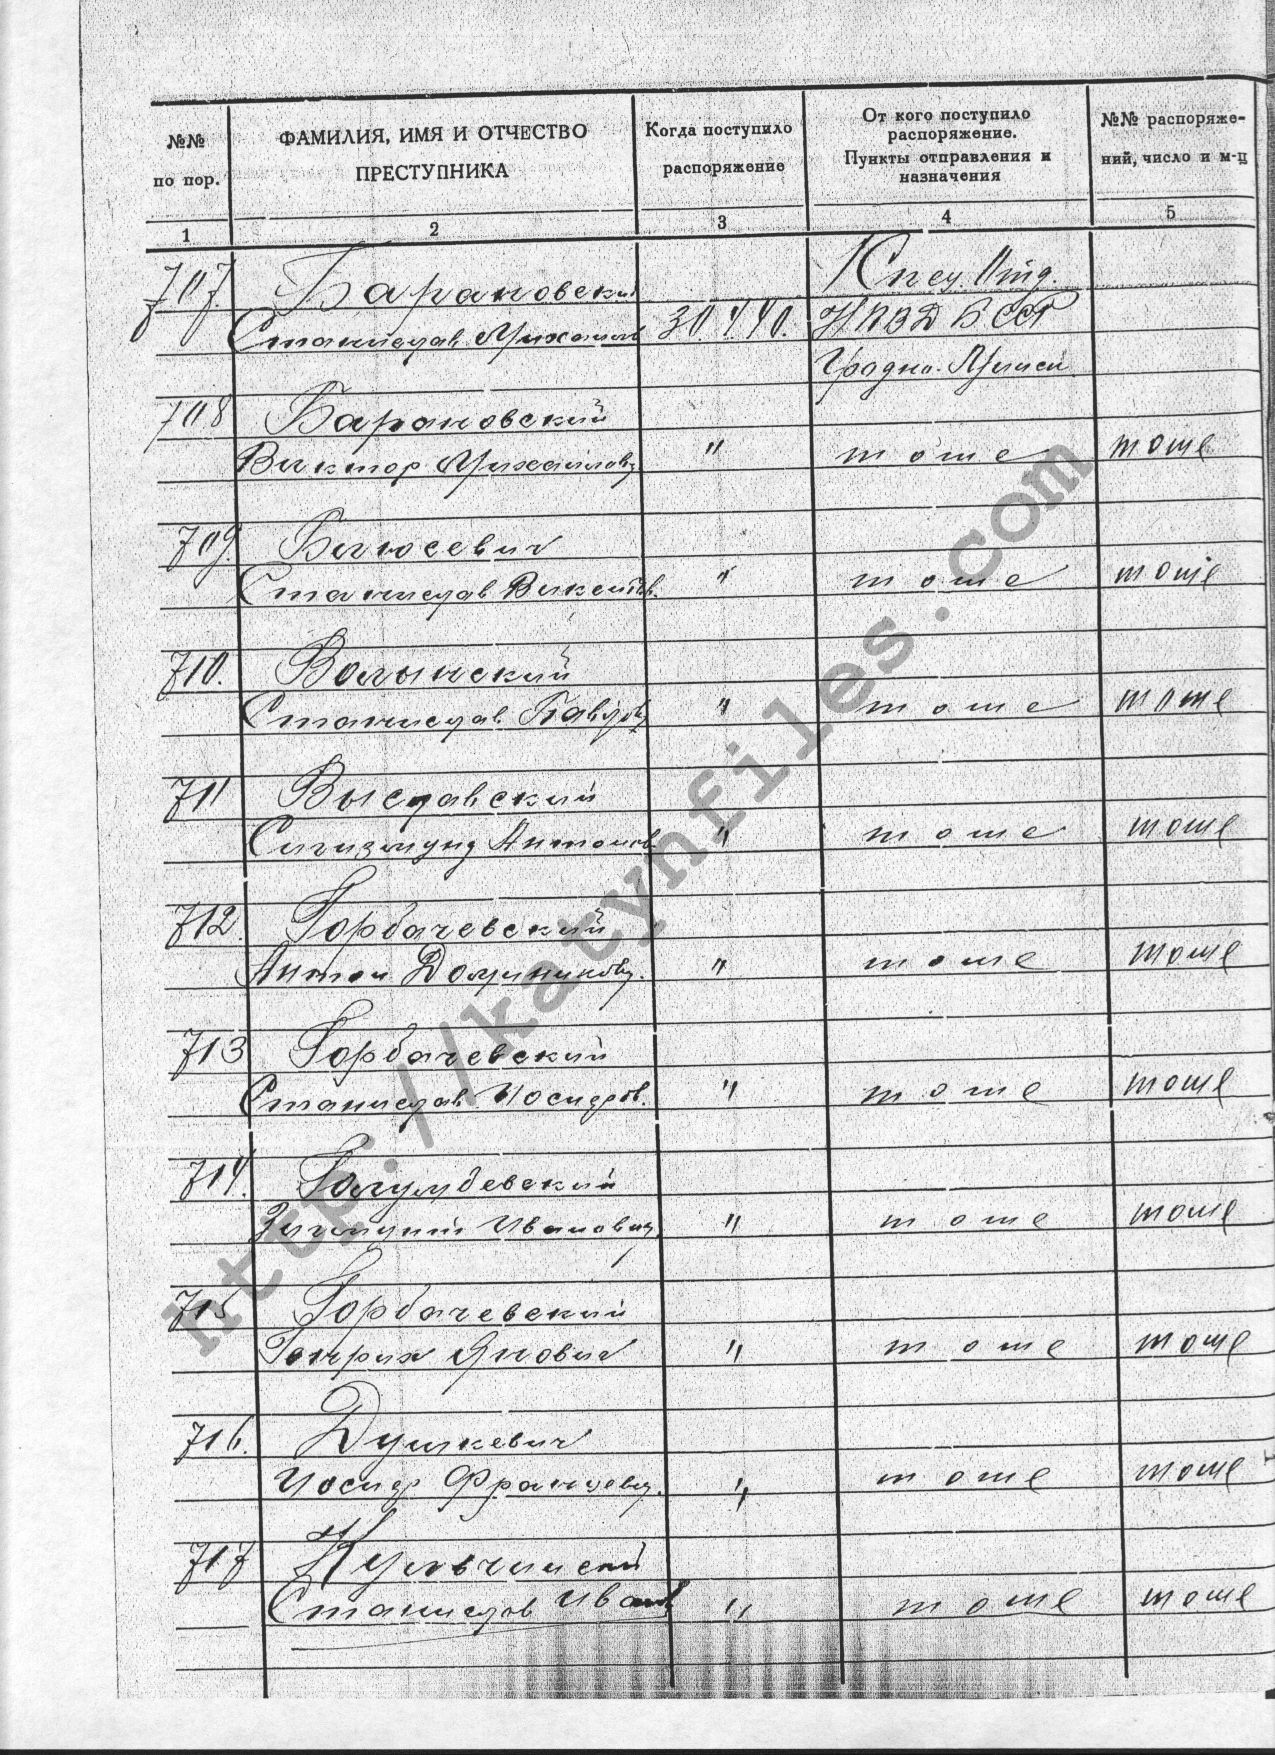 №№ по пор.
ФАМИЛИЯ, ИМЯ И ОТЧЕСТВО ПРЕСТУПНИКА
Когда поступило распоряжение
От кого поступило распоряжение. Пункты отправления и назначения
№№ распоряже-ний, число и м-ц
1 2 3 4 5
707. Барановский
Станислав Михайлов 30. НКВД БССР
Гродно.
708 Барановский
Виктор Михайлович " тоже тоже
709. Билюсевич
Станислав Викентьев. " тоже тоже
710. Волынский
Станислав " тоже тоже
711 Выславский
Сигизмунд Антонов " тоже тоже
712. Горбачевский
Антон Доминикович. " тоже тоже
713 Горбачевский
Станислав Иосифов. " тоже тоже
714. Голумбевский
Иванович " тоже тоже
715 Горбачевский
Генрих Янович " тоже тоже
716. Душкевич
Иосиф Францевич. " тоже тоже
717 Кульчинский
Станислав Иванов " тоже тоже
http://katynfiles.com